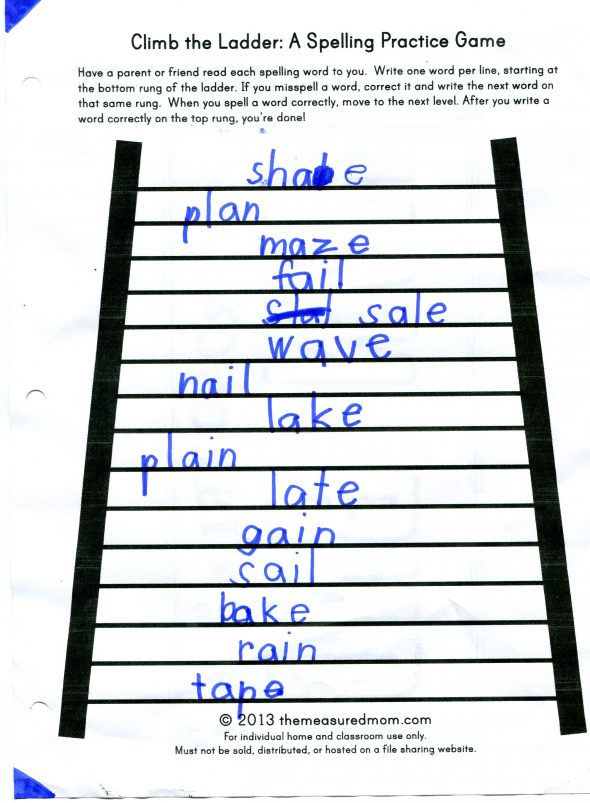 Climb the Ladder: A Spelling Practice Game
Have a parent or friend read each spelling word to you. Write one word per line, starting at
the bottom rung of the ladder. If you misspell a word, correct it and write the next word on
that same rung. When you spell a word correctly, move to the next level. After you write a
word correctly on the top rung, you're done!
plan
maze
fail
sale
wave
nail
lake
plain
late
gain
sail
bake
rain
tape
© 2013 themeasuredmom.com
For individual home and classroom use only.
Must not be sold, distributed, or hosted on a file sharing website.